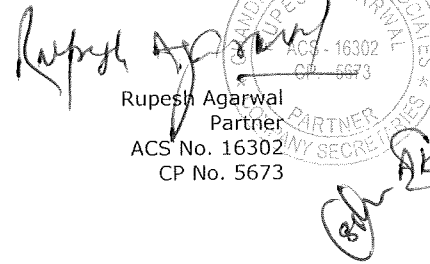 Rupesh Agarwal
RUPESH AGARWAL
ACS - 16302
CP - 5673
PARTNER
COMPANY SECRETARIES
Rupesh Agarwal
Partner
ACS No. 16302
CP No. 5673